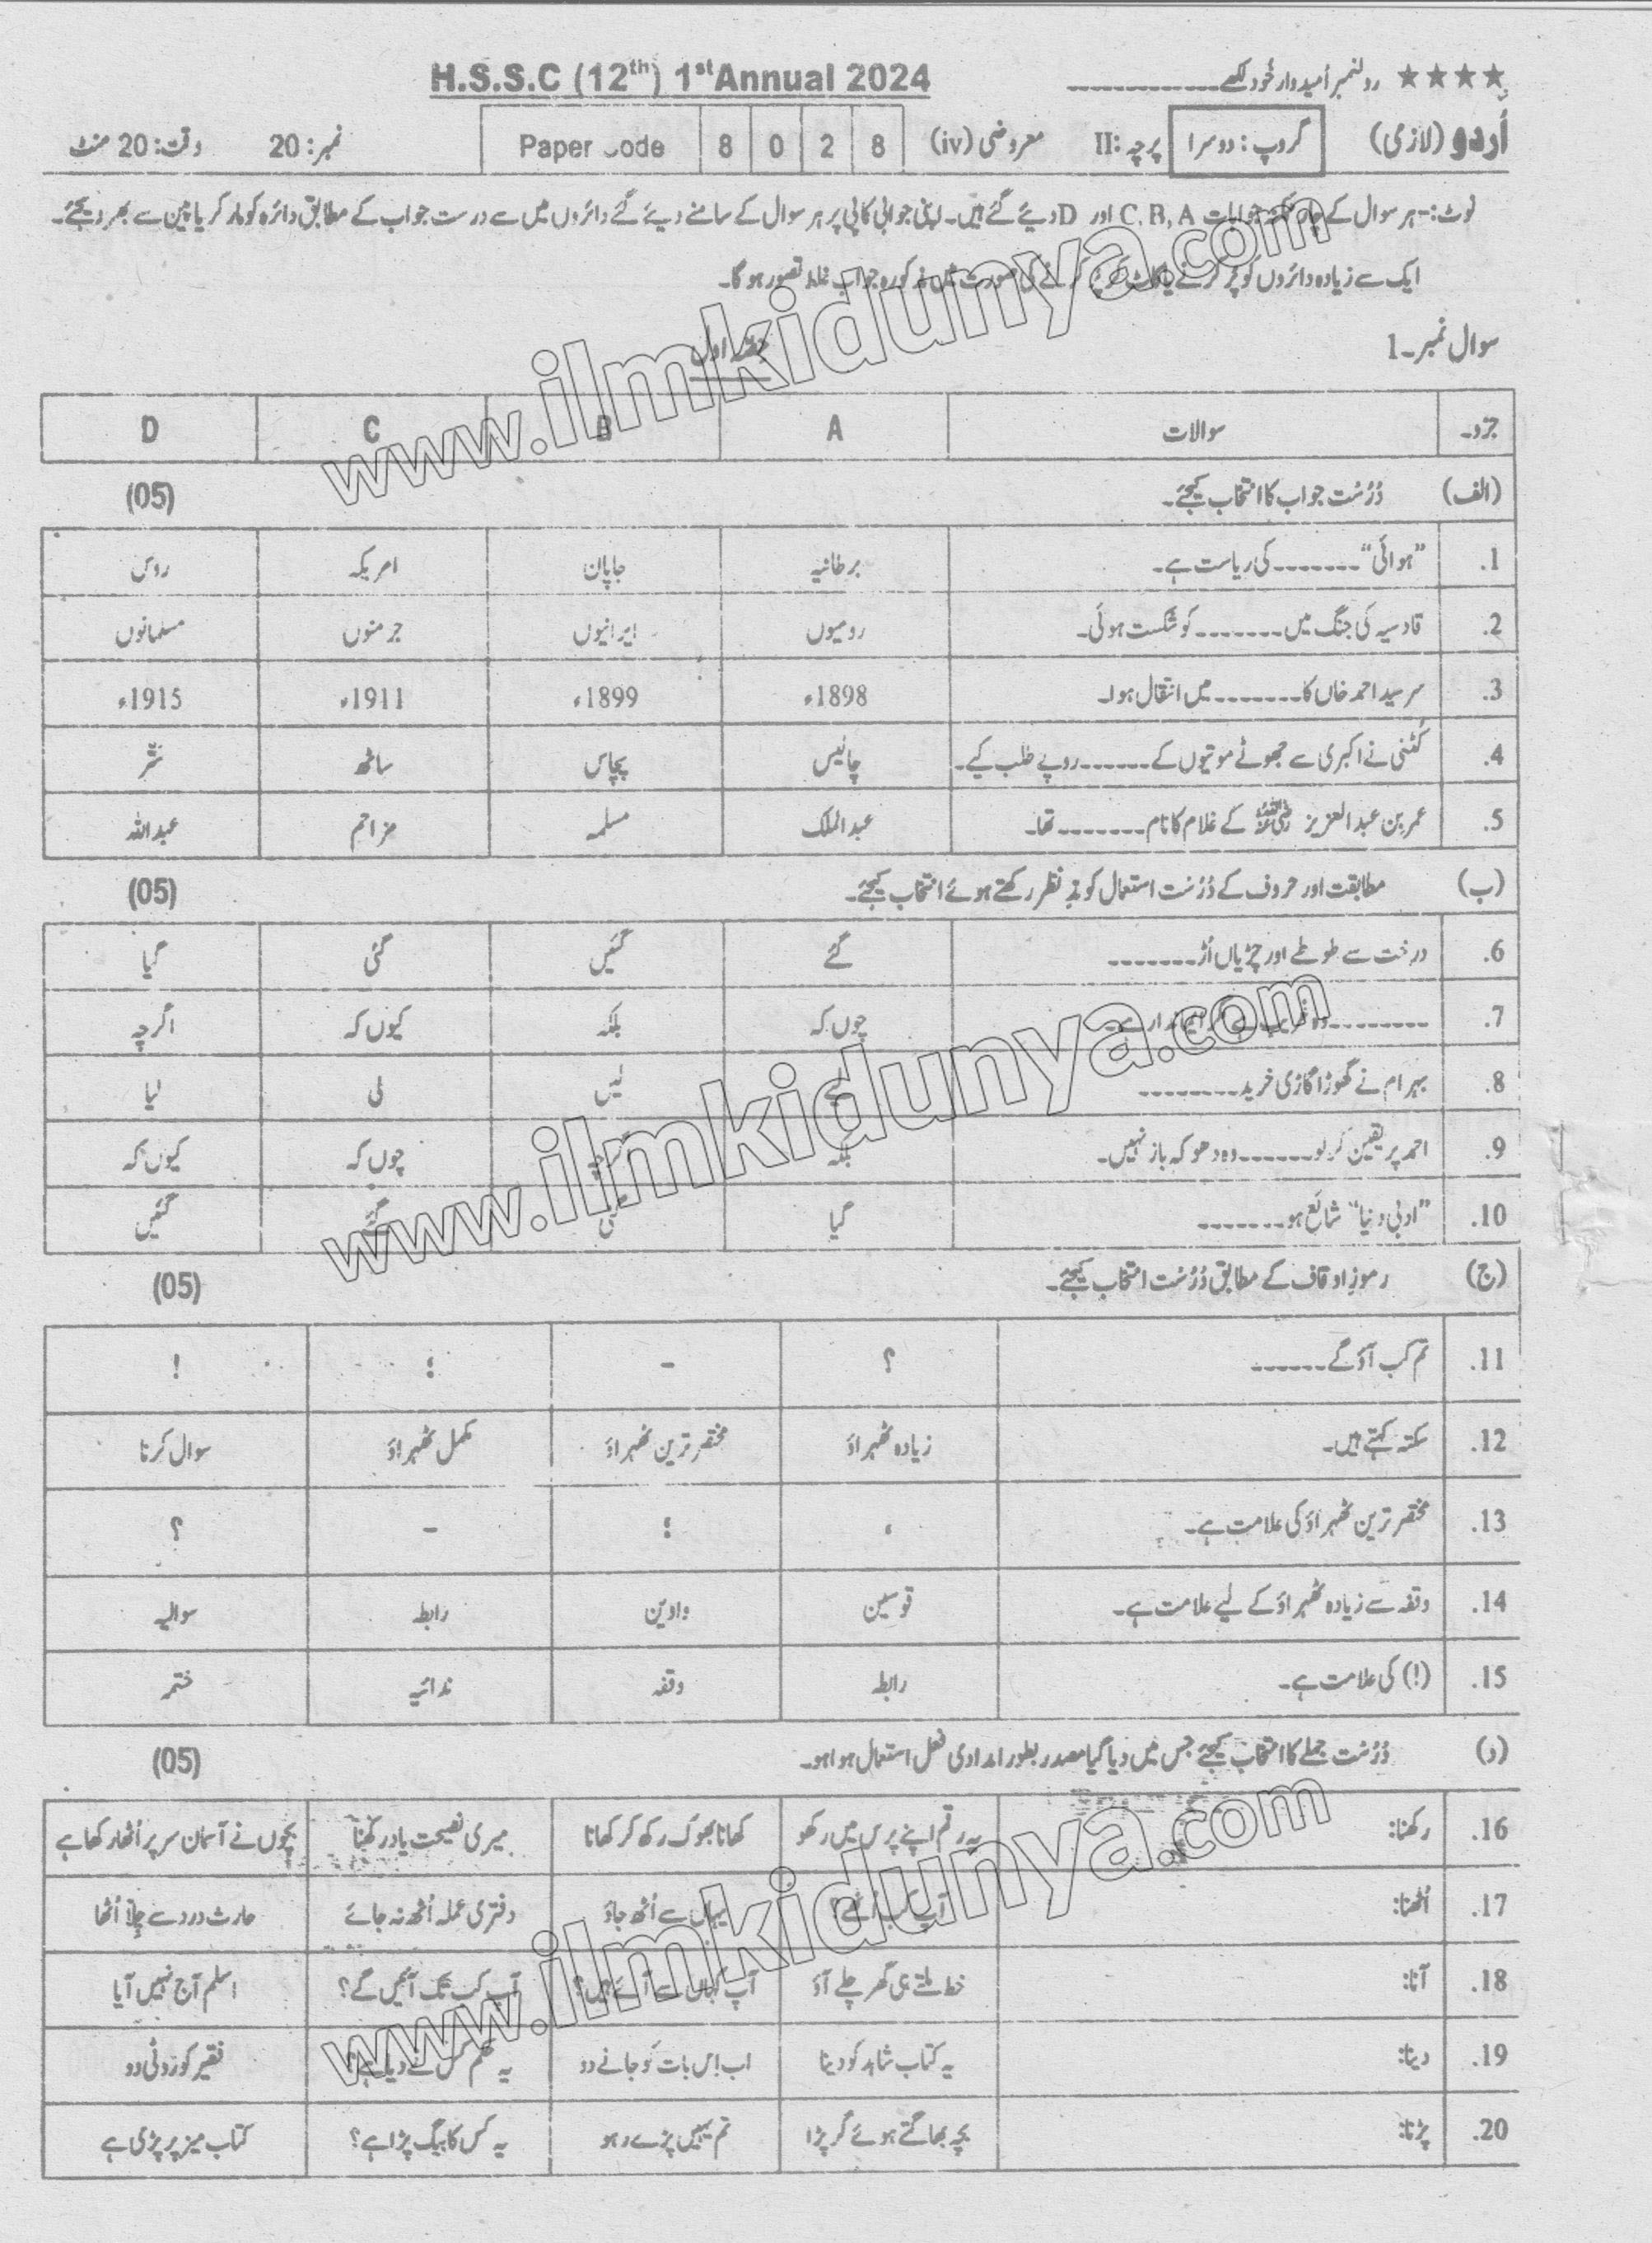 ★★★★ رولنمبر اُمیدوار خُود لکھے۔------------
H.S.S.C (12th) 1st Annual 2024
اُردو (لازمی) گروپ: دوسرا پرچہ: II معروضی (iv) Paper Code 8 0 2 8 نمبر: 20 وقت: 20 منٹ
نوٹ:- ہر سوال کے چار جوابات C, B, A اور D دیئے گئے ہیں۔ اپنی جوابی کاپی پر ہر سوال کے سامنے دیئے گئے دائروں میں سے درست جواب کے مطابق دائرہ کو مارکر یا پین سے بھر دیجئے۔
ایک سے زیادہ دائروں کو پُر کرنے یا کاٹ کر پُر کرنے کی صورت میں مذکورہ جواب غلط تصور ہو گا۔
سوال نمبر۔1 حصّہ اول
جزو۔ سوالات A B C D
(الف) دُرُست جواب کا انتخاب کیجئے۔ (05)
1. ”ہوائی“ ------- کی ریاست ہے۔ برطانیہ جاپان امریکہ روس
2. قادسیہ کی جنگ میں ------- کو شکست ہوئی۔ رومیوں ایرانیوں جرمنوں مسلمانوں
3. سر سید احمد خاں کا ------- میں انتقال ہوا۔ 1898ء 1899ء 1911ء 1915ء
4. کُٹنی نے اکبری سے جھوٹے موتیوں کے ------ روپے طلب کیے۔ چالیس پچاس ساٹھ ستّر
5. عمر بن عبدالعزیز کے غلام کا نام ------- تھا۔ عبدالملک مسلمہ مزاحم عبداللہ
(ب) مطابقت اور حروف کے دُرُست استعمال کو مدِ نظر رکھتے ہوئے انتخاب کیجئے۔ (05)
6. درخت سے طوطے اور چڑیاں اُڑ ------- گئے گئیں گئی گیا
7. --------- وہ غریب ہے چوں کہ بلکہ کیوں کہ اگرچہ
8. بہرام نے گھوڑا گاڑی خرید -------- لیے لیں لی لیا
9. احمد پر یقین کر لو ------ وہ دھوکہ باز نہیں۔ بلکہ چوں کہ کیوں کہ
10. ”ادبی دنیا“ شائع ہو ------- گیا گئی گئے گئیں
(ج) رموزِ اوقاف کے مطابق دُرُست انتخاب کیجئے۔ (05)
11. تم کب آؤ گے ------ ؟ - ؛ !
12. سکتہ کہتے ہیں۔ زیادہ ٹھہراؤ مختصر ترین ٹھہراؤ مکمل ٹھہراؤ سوال کرنا
13. مختصر ترین ٹھہراؤ کی علامت ہے۔ ، ؛ - ؟
14. وقفہ سے زیادہ ٹھہراؤ کے لیے علامت ہے۔ قوسین واوین رابطہ سوالیہ
15. (!) کی علامت ہے۔ رابطہ وقفہ ندائیہ ختمہ
(د) دُرُست جملے کا انتخاب کیجئے جس میں دیا گیا مصدر بطور امدادی فعل استعمال ہوا ہو۔ (05)
16. رکھنا: یہ رقم اپنے پرس میں رکھو کھانا بھوک رکھ کر کھانا میری نصیحت یاد رکھنا بچوں نے آسمان سر پر اُٹھا رکھا ہے
17. اُٹھنا: آپ کب اُٹھے؟ یہاں سے اُٹھ جاؤ دفتری عملہ اُٹھ نہ جائے حارث درد سے چِلّا اُٹھا
18. آنا: خط ملتے ہی گھر چلے آؤ آپ کہاں سے آئے ہیں؟ آپ کب تک آئیں گے؟ اسلم آج نہیں آیا
19. دینا: یہ کتاب شاہد کو دینا اب اِس بات کو جانے دو یہ قلم کس نے دیا ہے؟ فقیر کو روٹی دو
20. پڑنا: بچہ بھاگتے ہوئے گر پڑا تم یہیں پڑے رہو یہ کس کا بیگ پڑا ہے؟ کتاب میز پر پڑی ہے
www.ilmkidunya.com
www.ilmkidunya.com
www.ilmkidunya.com